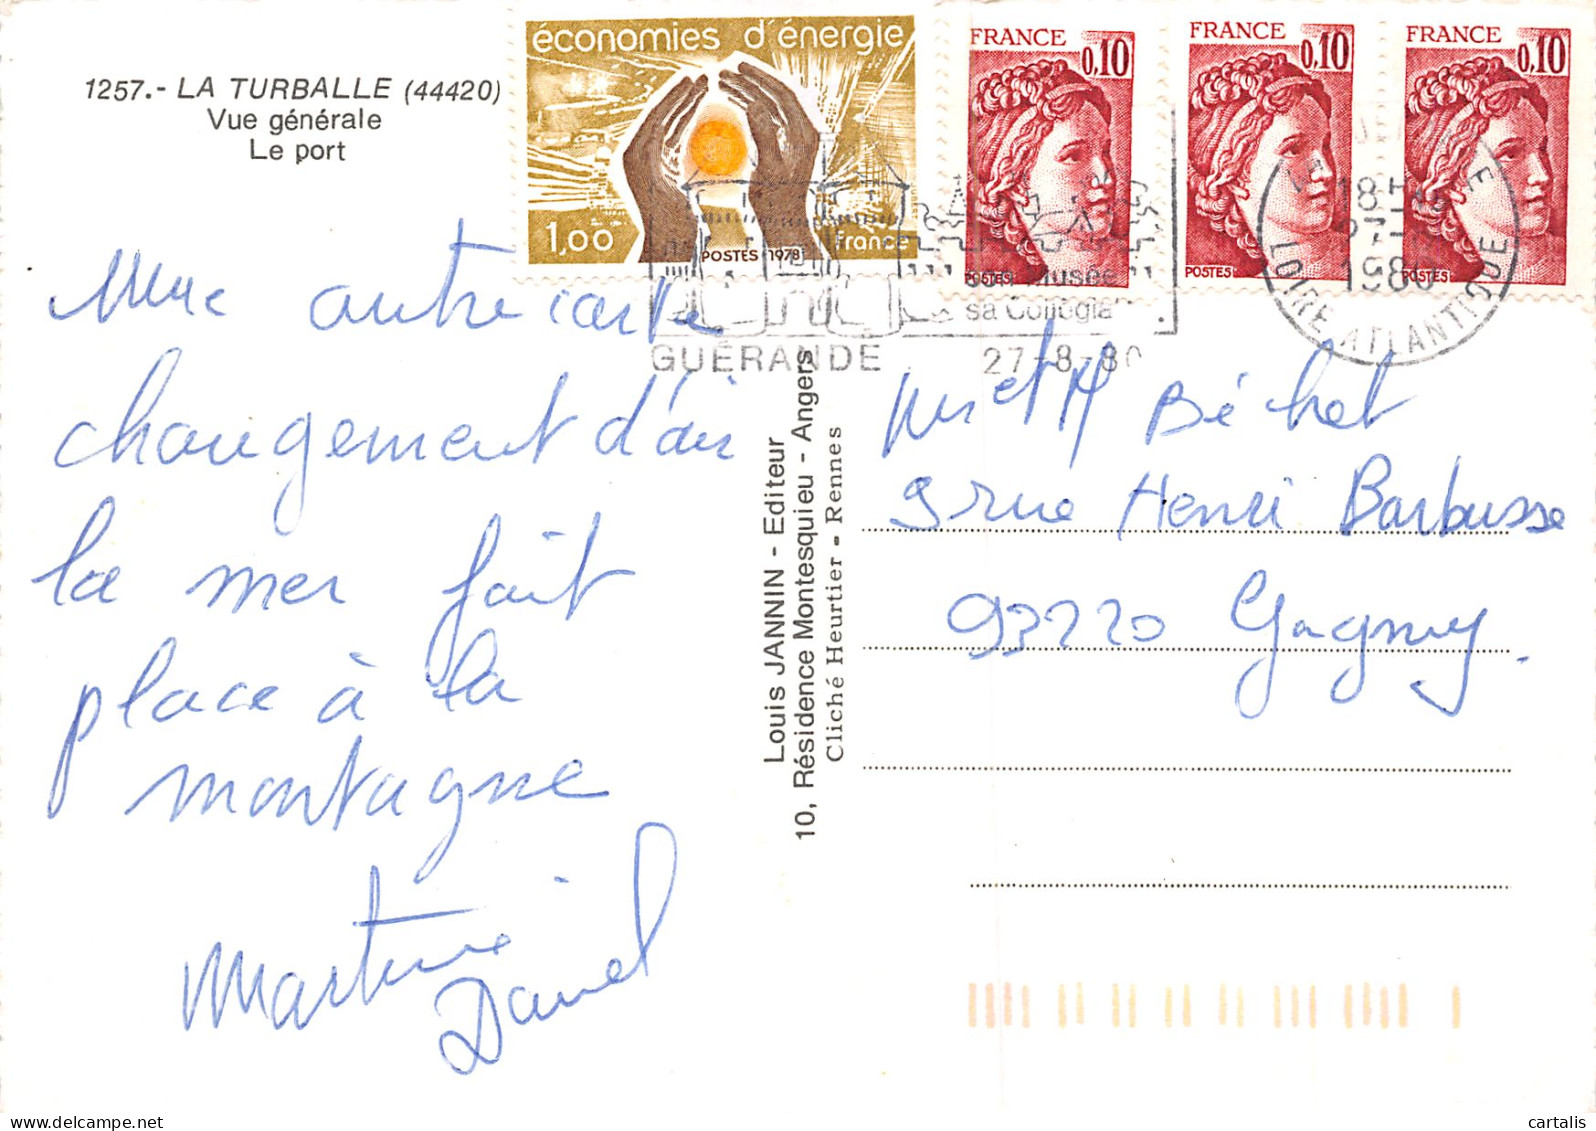 1257.- LA TURBALLE (44420)
Vue générale
Le port
économies d'énergie
1,00
POSTES 1978
france
FRANCE
0,10
POSTES
FRANCE
0,10
POSTES
FRANCE
0,10
POSTES
son Musée
sa Collégia
GUÉRANDE
27-8-80
18H
27-8
1980
LOIRE ATLANTIQUE
Une autre carte
changement d'air
la mer fait
place à la
montagne
Martine
Daniel
Louis JANNIN - Editeur
10, Résidence Montesquieu - Angers
Cliché Heurtier - Rennes
et M Béchet
9 rue Henri Barbusse
93220 Gagny.
cartalis
www.delcampe.net